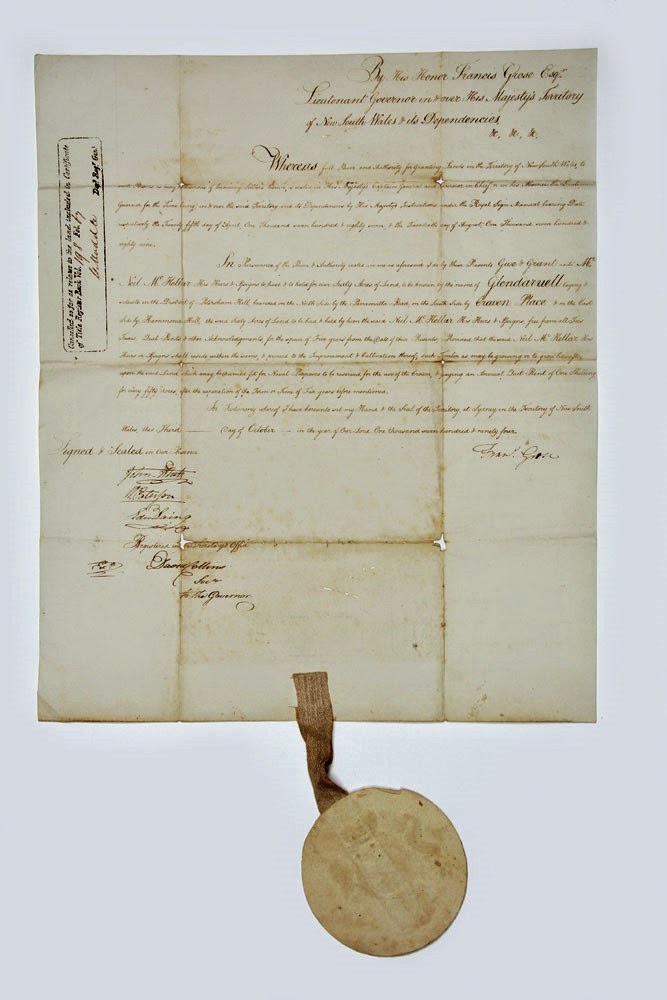 By His Honor Francis Grose Esqr.
Lieutenant Governor in & over His Majesty's Territory
of New South Wales & its Dependencies
&c, &c, &c,
Whereas full Power and Authority for Granting Lands in the Territory of New South Wales, to
such Persons as may be desirous of becoming Settlers therein, is vested in His Majesty's Captain General and Governor in Chief, or in his Absence the Lieut.
Governor for the Time being, in & over the said Territory and its Dependencies by His Majesty's Instructions under the Royal Sign Manual bearing Date
respectively the Twenty fifth day of April, One Thousand seven hundred & eighty seven, & the Twentieth day of August, One Thousand seven hundred &
eighty nine.
In Pursuance of the Power & Authority vested in me as aforesaid I do by these Presents Give & Grant unto
Neil Mc Kellar His Heirs & Assigns to have & to hold for ever Sixty Acres of Land, to be known by the name of Glendaruell laying &
situate in the District of Petersham Hill, bounded on the North side by the Parramatta Road, on the South side by Craven Place & on the East
side by Hammond Hill, the said Sixty Acres of Land to be had & held by him the said Neil Mc Kellar His Heirs & Assigns free from all Fees
Taxes Quit Rents & other Acknowledgments for the space of Five years from the Date of these Presents; Provided that the said Neil Mc Kellar His
Heirs or Assigns shall reside within the same, & proceed to the Improvement & Cultivation thereof, such Timber as may be growing or to grow hereafter
upon the said Land which may be deemed fit for Naval Purposes to be reserved for the use of the Crown, & paying an Annual Quit Rent of One Shilling
for every fifty Acres, after the expiration of the Term or Time of Five years before mentioned.
In Testimony whereof I have hereunto set my Hand & the Seal of the Territory, at Sydney in the Territory of New South
Wales this Third Day of October in the year of Our Lord One thousand seven hundred & ninety four.
Signed & Sealed in Our Presence
Frans. Grose
John White
Wm Paterson
Edw Laing
Registered in the Secretary's Office
David Collins
Secr
to the Governor
Cancelled so far as relates to the land included in Certificate
of Title Register Book Vol. 198 Fol. 67
Depy. Regr. Genl.